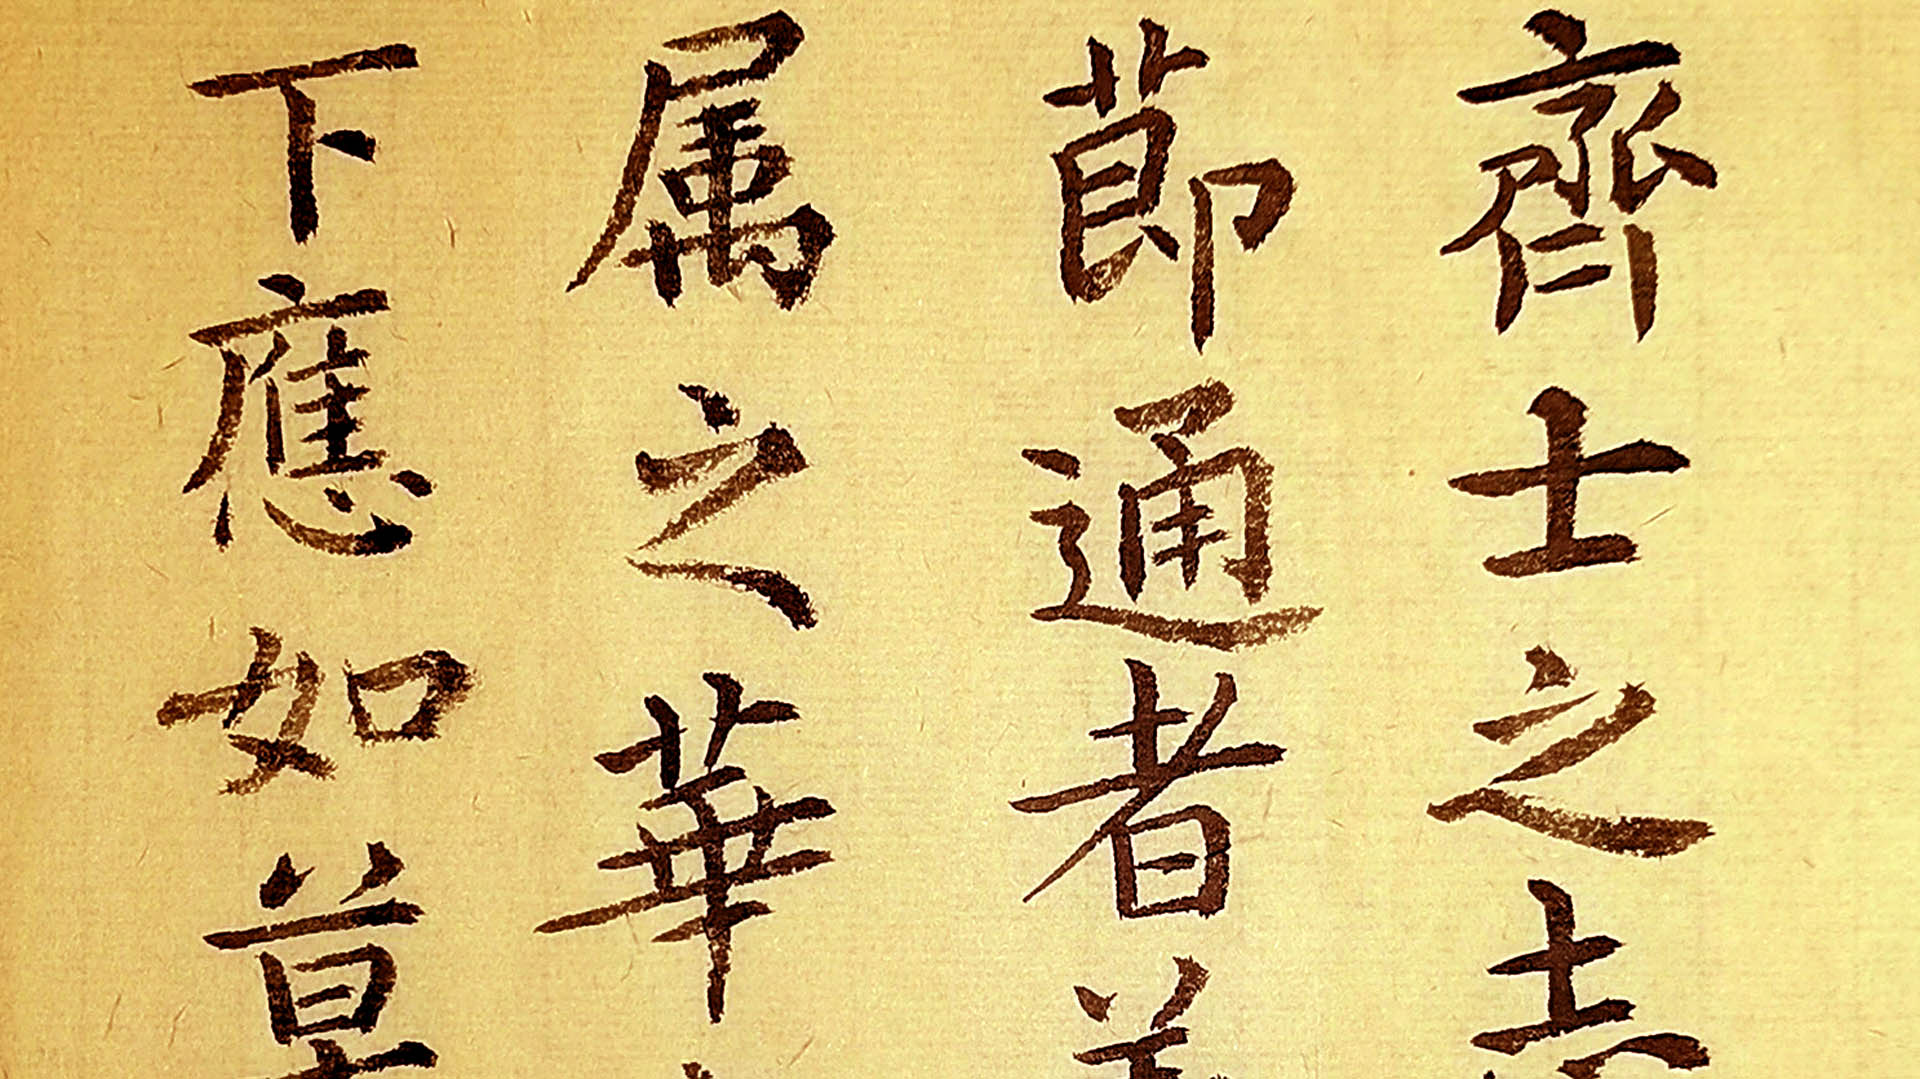 齊士之
節通者
属之華
下應如草